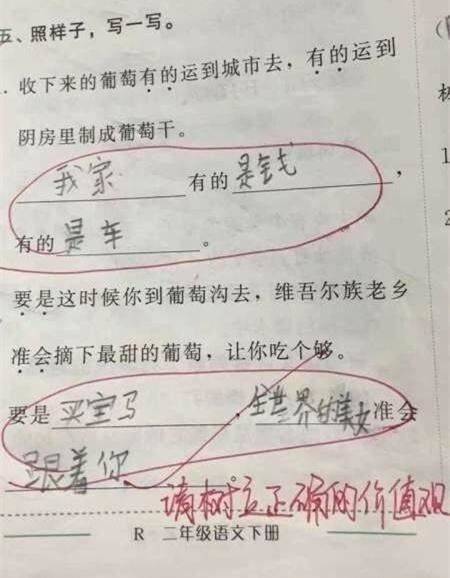 五、照样子，写一写。
. 收下来的葡萄有的运到城市去，有的运到
阴房里制成葡萄干。
我家有的是钱，
有的是车。
要是这时候你到葡萄沟去，维吾尔族老乡
准会摘下最甜的葡萄，让你吃个够。
要是买宝马，全世界的美女准会
跟着你。
请树立正确的价值观
R 二年级语文下册